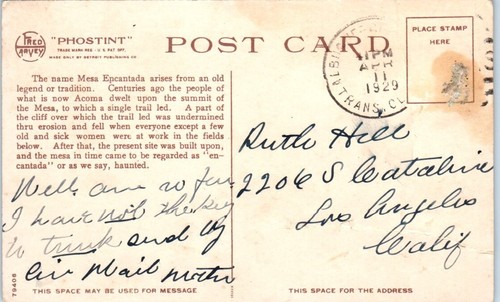 FRED HARVEY
"PHOSTINT"
TRADE MARK REG. - U.S. PAT. OFF.
MADE ONLY BY DETROIT PUBLISHING CO.
POST CARD
PLACE STAMP
HERE
ALBU
APR
11
1929
TRANS. CL
The name Mesa Encantada arises from an old
legend or tradition. Centuries ago the people of
what is now Acoma dwelt upon the summit of
the Mesa, to which a single trail led. A part of
the cliff over which the trail led was undermined
thru erosion and fell when everyone except a few
old and sick women were at work in the fields
below. After that, the present site was built upon,
and the mesa in time came to be regarded as "en-
cantada" or as we say, haunted.
Well are so far
I have not the key
to trunk send by
Air Mail Mother
Ruth Hill
2206 S Catalina
Los Angeles
Calif
79406
THIS SPACE MAY BE USED FOR MESSAGE
THIS SPACE FOR THE ADDRESS